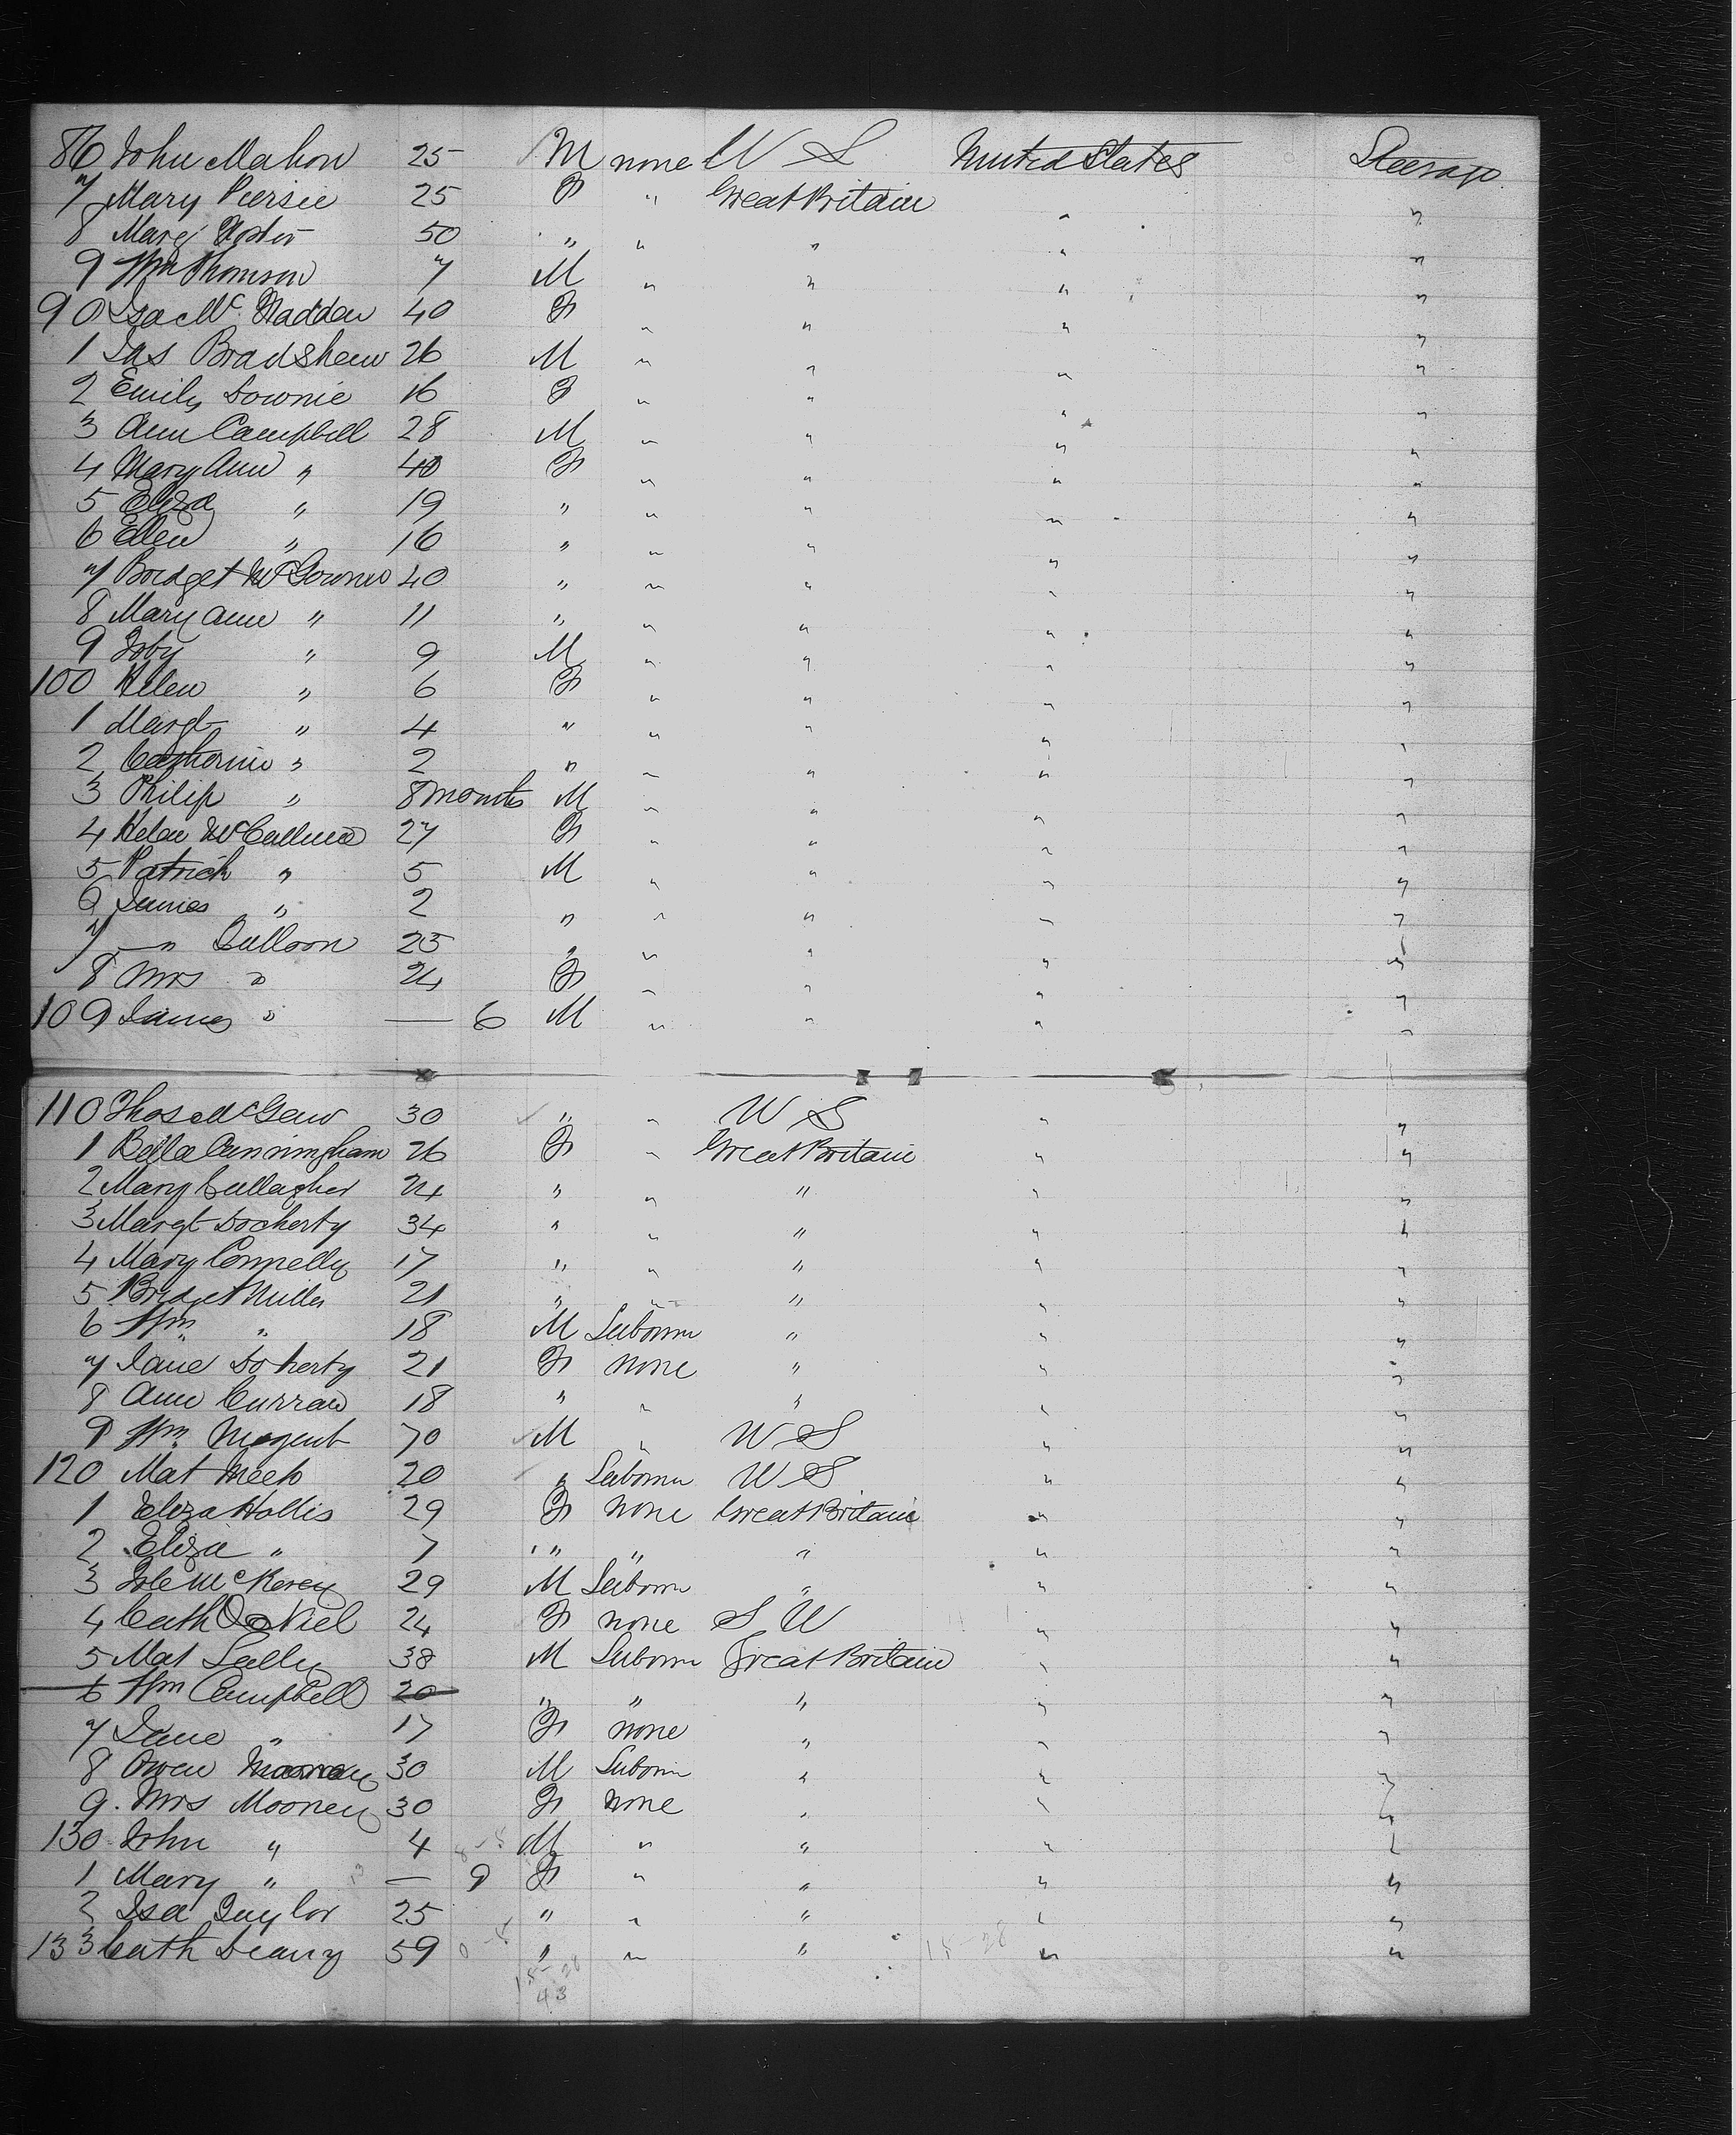 86 John Mahon 25 M none U S United States Steerage
7 Mary Piersie 25 F " Great Britain " "
8 Margt 50 " " " " "
9 Wm Thomson 7 M " " " "
90 Isa McFadden 40 F " " " "
1 Jas Bradshaw 26 M " " " "
2 Emily Downie 16 F " " " "
3 Ann Campbell 28 M " " " "
4 Mary Ann " 40 F " " " "
5 Eliza " 19 " " " " "
6 Ellen " 16 " " " " "
7 Bridget McGowne 40 " " " " "
8 Mary Ann " 11 " " " " "
9 " 9 M " " " "
100 Helen " 6 F " " " "
1 Margt " 4 " " " " "
2 Catherine " 2 " " " " "
3 Philip " 8 months M " " " "
4 Helen McCallum 27 F " " " "
5 Patrick " 5 M " " " "
6 James " 2 " " " " "
7 " Gilloon 25 " " " " "
8 Mrs " 24 F " " " "
109 James " — 6 M " " " "
110 Thos McGaw 30 " " U S " "
1 Bella Cunningham 26 F " Great Britain " "
2 Mary Gallagher 24 " " " " "
3 Margt Docherty 34 " " " " "
4 Mary Connelly 17 " " " " "
5 Bridget Miller 21 " " " " "
6 Wm " 18 M Laborer " " "
7 Jane Doherty 21 F none " " "
8 Ann Curran 18 " " " " "
9 Wm Nugent 70 M " U S " "
120 Mat Meek 20 " Laborer U S " "
1 Eliza Hollis 29 F none Great Britain " "
2 Eliza " 7 " " " " "
3 29 M Laborer " " "
4 Cath O Niel 24 F none S U " "
5 Mat Lally 38 M Laborer Great Britain " "
6 Wm Campbell 20 " " " " "
7 Jane " 17 F none " " "
8 Owen Mooney 30 M Laborer " " "
9. Mrs Mooney 30 F none " " "
130 John " 4 M " " " "
1 Mary " — 9 F " " " "
2 Isa Taylor 25 " " " " "
133 Cath Deany 59 " " " " "